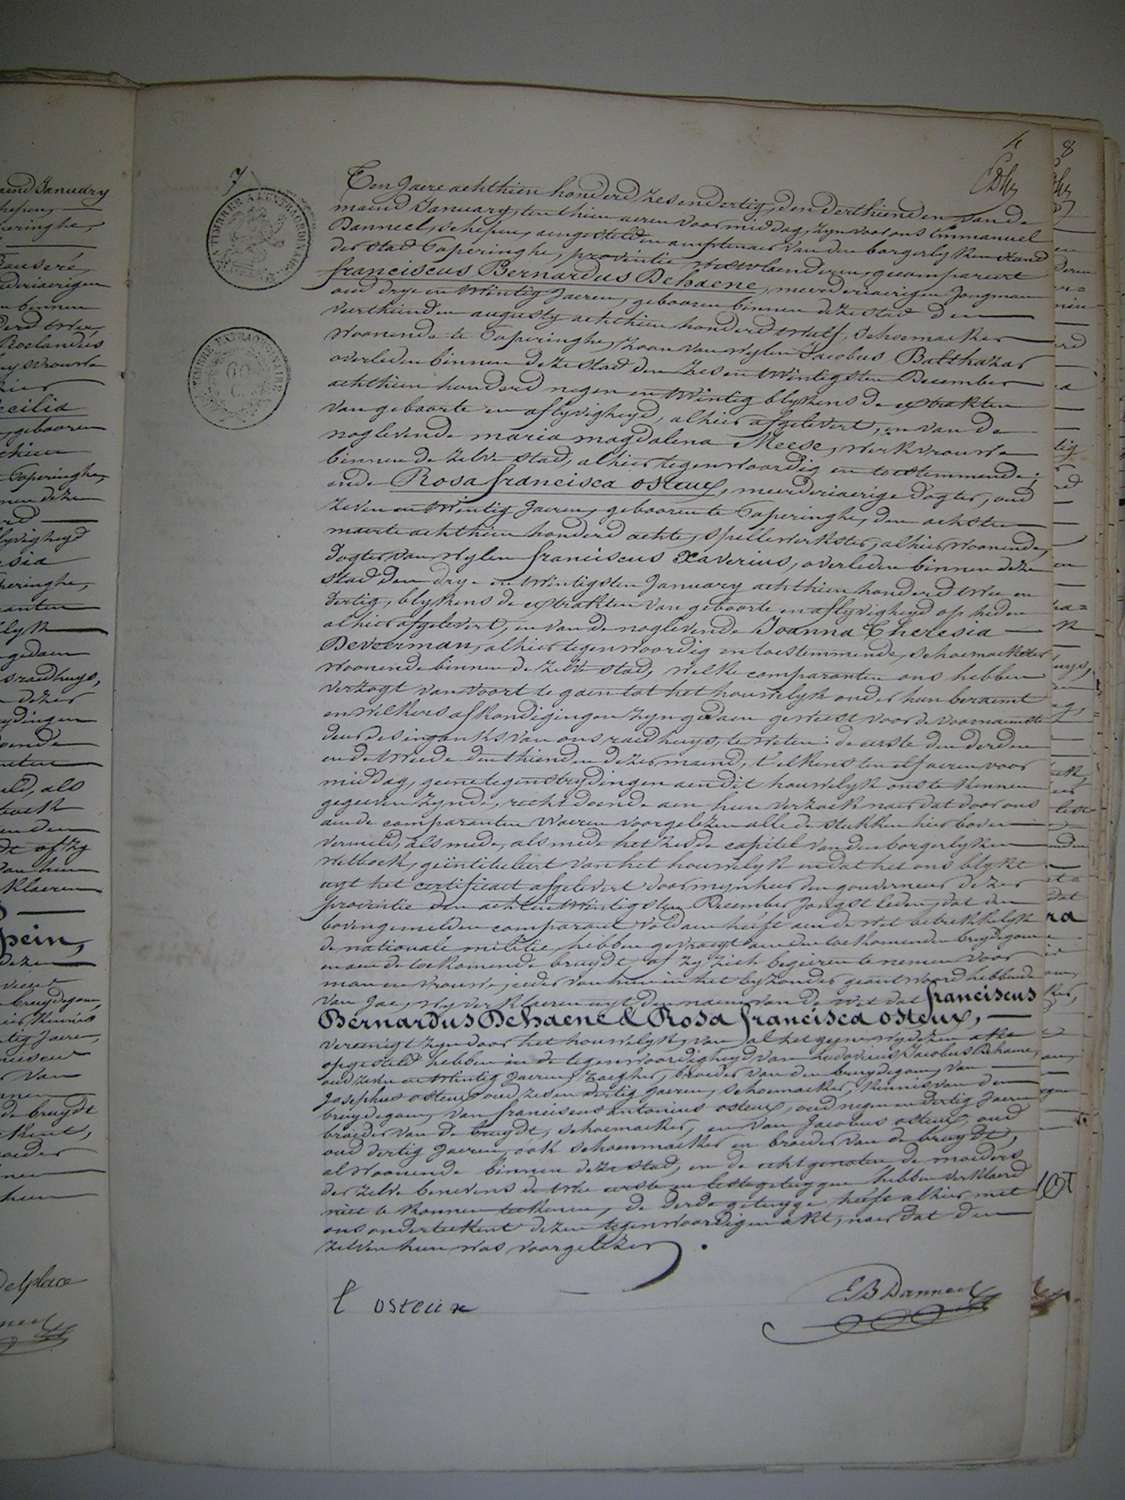 7
4
8
Ten Jaere achthien honderd zesendertig, den derthienden van de
maend January, ten thien ueren voormiddag, zyn voor ons Emmanuel
Danneel, schepen, aengestelden amptenaer van den borgerlyken stand
der stad Poperinghe, provintie westvlaenderen, gecompareert
franciscus Bernardus Dehaene, meerderjaerigen Jongman
oud drye en twintig Jaeren, gebooren binnen deze stad den
veerthienden augusty achthien honderd twelf, schoemaeker
woonende te Poperinghe, zoon van wylen Jacobus Balthazar
overleden binnen deze stad den zes en twintigsten December
achthien honderd negen en twintig blykens de extrakten
van geboorte en aflyvigheyd, alhier afgelevert, en van de
noglevende maria magdalena Meese, werkvrouw
binnen de zelve stad, alhier tegenwoordig en toestemmende;
ende Rosa francisca osteux, meerderjaerige dogter, oud
zeven en twintig Jaeren, gebooren te Poperinghe, den achsten
maerte achthien honderd achte, spellewerkster, alhier woonende,
dogter van wylen franciscus Xaverius, overleden binnen deze
stad den drye en twintigsten January achthien honderd twee en
dertig, blykens de extrakten van geboorte en aflyvigheyd op heden
alhier afgelevert, en van de noglevende Joanna Theresia
Deveerman, alhier tegenwoordig en toestemmende, schoemaekster
woonende binnen de zelve stad, welke comparanten ons hebben
verzogt van voort te gaen tot het houwelyk onder hun beraemt
en welkers afkondigingen zyn gedaen geweest voor de voornaemste
deur des inganks van ons raedhuys, te weten: de eerste den derden
en de tweede den thienden dezer maend, telkens ten elf ueren voor
middag, geene tegenstrydingen aen dit houwelyk ons te kennen
gegeeven zynde, recht doende aen hun verzoek naer dat door ons
aen de comparanten waeren voorgelezen alle de stukken hier boven
vermeld, als mede, als mede het zesde capitel van den borgerlyken
wetboek, geintituleert van het houwelyk en dat het ons blykt
uyt het certificaet afgelevert door mynheer den gouverneur dezer
provintie den acht en twintigsten December Jongstleden, dat den
bovengemelden comparant voldaen heeft aen de wet betrekkelyk
de nationale militie, hebben gevraegt aen den toekomenden bruydegom
en aen de toekomende bruydt of zy zich begeeren te nemen voor
man en vrouw, ieder van hun in het byzonder geantwoord hebbende
van Jae, wy verklaeren uyt den naem van de wet dat franciscus
Bernardus Dehaene & Rosa francisca osteux,
vereenigt zyn door het houwelyk, van al het gene wy dezen akte
opgesteld hebben in de tegenwoordigheyd van Ludovicus Jacobus Dehaene,
oud zeven en twintig Jaeren, broeder van den bruydegom, van
Josephus osteux oud zes en dertig Jaeren, schoemaeker, kennis van den
bruydegom, van franciscus antonius osteux, oud negenendertig Jaeren
broeder van de bruydt, schoemaeker, en van Jacobus osteux, oud
oud dertig Jaeren, ook schoenmaeker en broeder van de bruydt,
al woonende binnen deze stad, en de echtgenoten de moeders
der zelve benevens de twee eerste en leste getuygen hebben verklaerd
niet te konnen teekenen, de derde getuyge heeft alhier met
ons onderteekent dezen tegenwoordigen akt, naer dat den
zelven hun was voorgelezen.
f osteux
E B Danneel